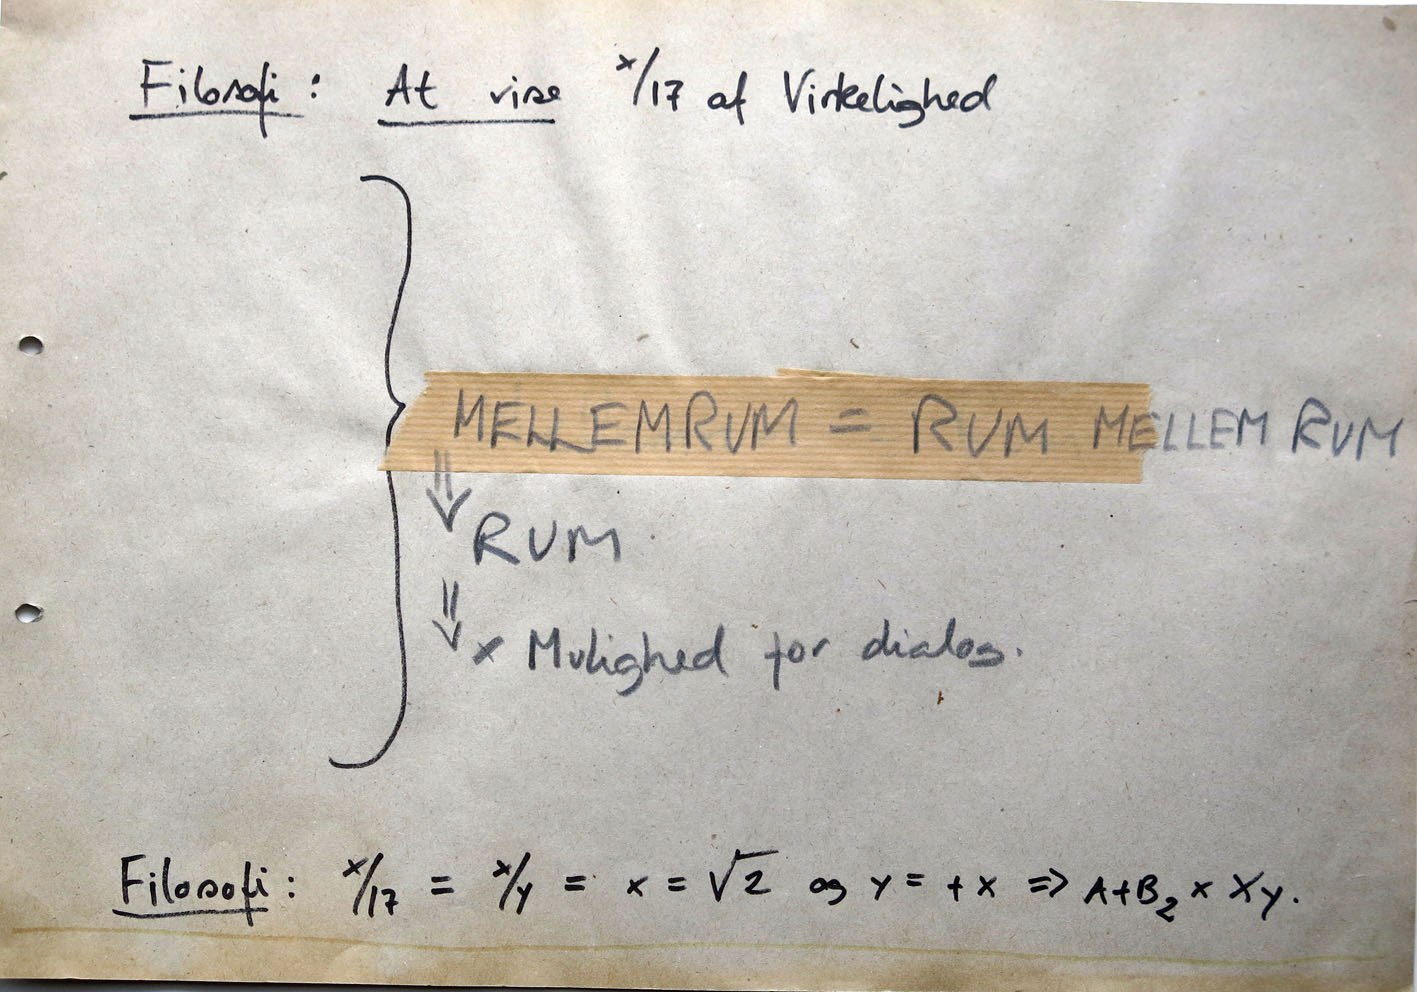 Filosofi: At vise x/17 af Virkelighed
MELLEMRUM = RUM MELLEM RUM
⇓ RUM
⇓ x Mulighed for dialog.
Filosofi: x/17 = x/y = x = √2 og y = +x => A+B₂ x Xy.